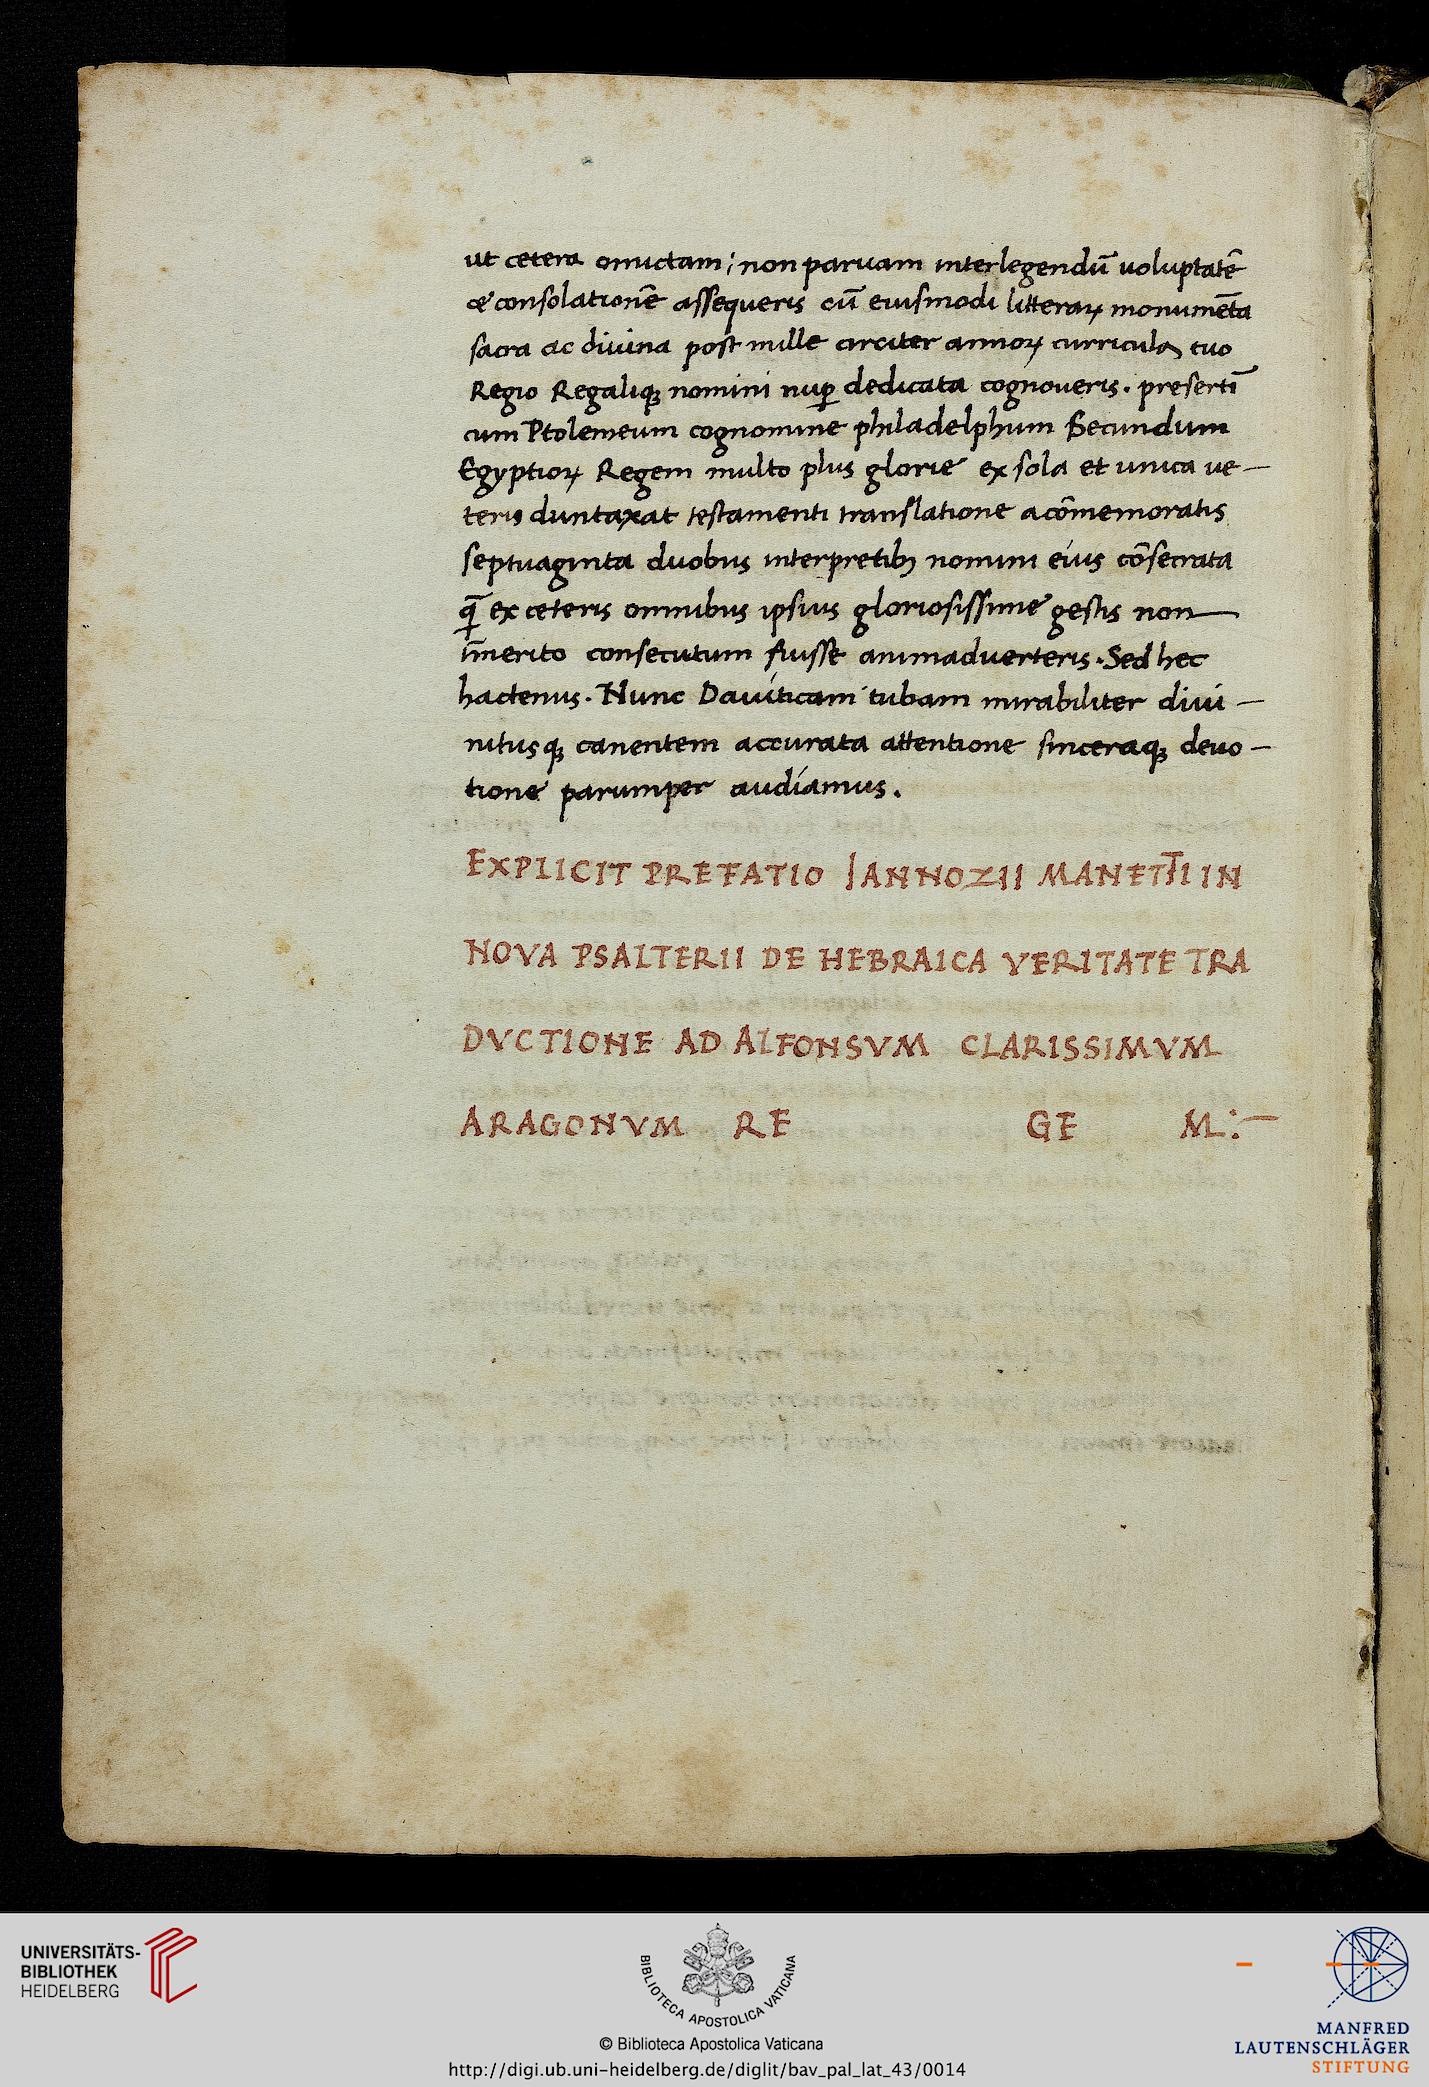 ut cetera omictam; non parvam interlegendū voluptatē
& consolationē assequeris cū eiusmodi litteraꝝ monumēta
sacra ac divina post mille circiter annoꝝ curricula tuo
Regio Regaliqꝫ nomini nuꝑ dedicata cognoveris. presertī
cum Ptolemeum cognomine philadelphum Secundum
Egyptioꝝ Regem multo plus glorie ex sola et unica ve-
teris duntaxat testamenti translatione a cōmemoratis
septuaginta duobus interpretibꝫ nomini eius cōsecrata
ꝙ̄ ex ceteris omnibus ipsius gloriosissime gestis non
īmerito consecutum fuisse animadverteris. Sed hec
hactenus. Nunc Daviticam tubam mirabiliter divi-
nitusqꝫ canentem accurata attentione sinceraqꝫ devo-
tione parumper audiamus.
EXPLICIT PREFATIO IANNOZII MANETTI IN
NOVA PSALTERII DE HEBRAICA VERITATE TRA
DVCTIONE AD ALFONSVM CLARISSIMVM
ARAGONVM RE GE M:-
UNIVERSITÄTS-
BIBLIOTHEK
HEIDELBERG
BIBLIOTECA APOSTOLICA VATICANA
© Biblioteca Apostolica Vaticana
http://digi.ub.uni-heidelberg.de/diglit/bav_pal_lat_43/0014
MANFRED
LAUTENSCHLÄGER
STIFTUNG